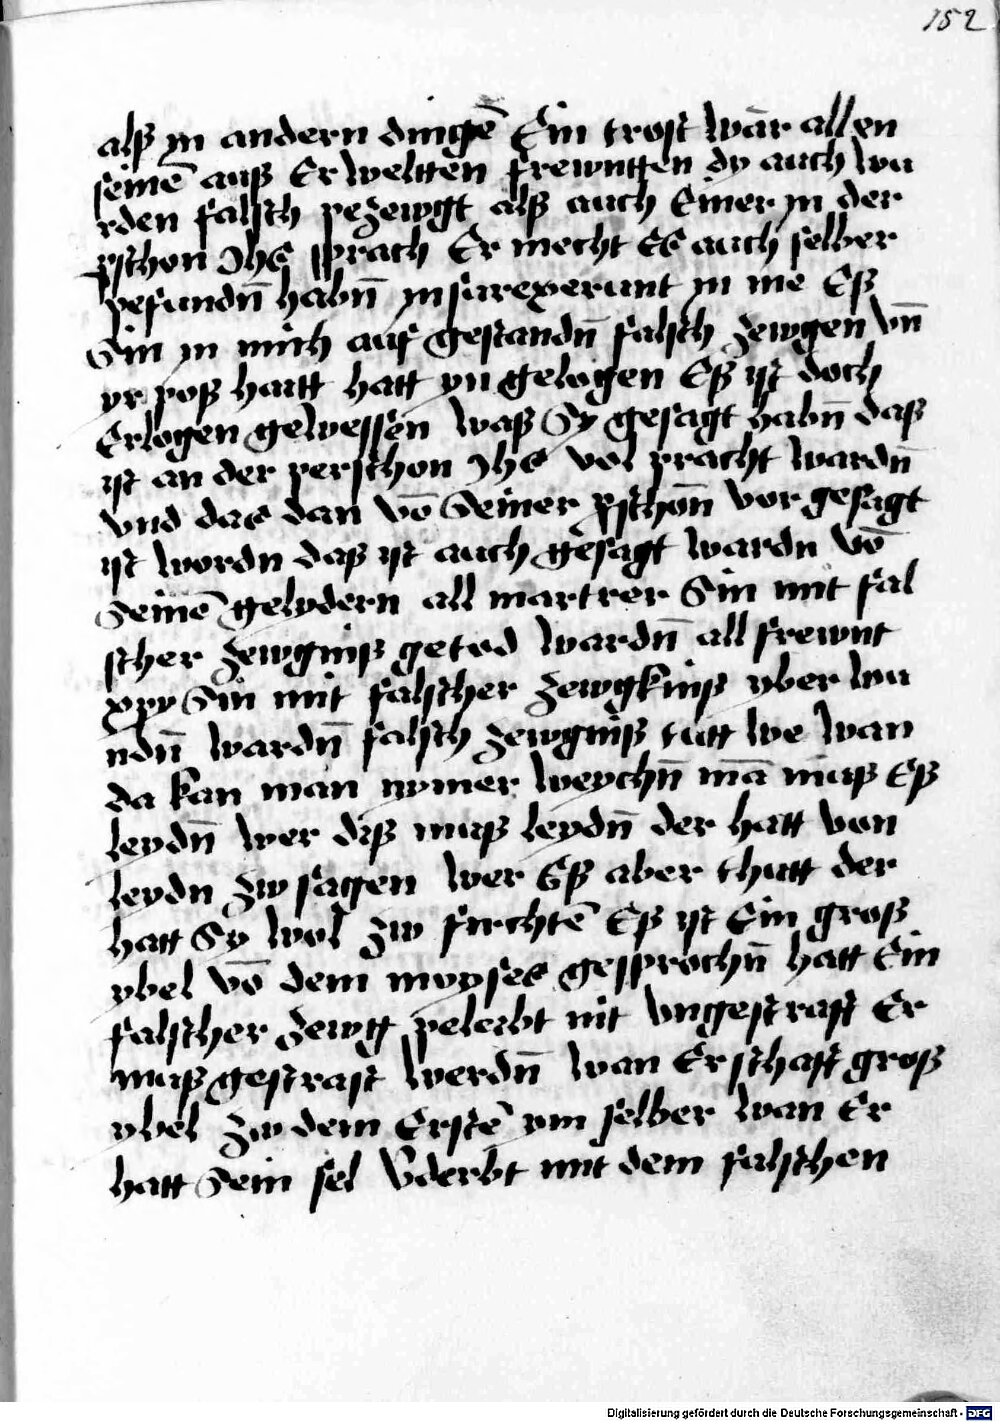 152
alß yn andern dingē Ein trost wār allen
seinē auß Erweltten frewntten dy auch wu
rden falsch pezewgt alß auch Einer yn der
pschon Jhs sprach Er mecht Es auch selber
pefundn̄ habn̄ ynsurexerunt yn me Eß
Sin yn mich auf gestandn̄ falsch zewgen vn̄
yr poß hatt hatt yn gelogen Eß yst doch
Erlogen gewessen waß Sy gesagt habn̄ daß
yst an der perschon Jhs vol pracht wardn̄
vnd das dan vō Seiner pschon̄ vor gesagt
yst wordn daß yst auch gesagt wardn vō
Seinē gelydern all martrer Sin mit fal
scher zewgniß getod wardn̄ all frewnt
xpy Sin mit falscher zewgkniß yber wu
ndn̄ wardn̄ falsch zewgniß tutt we wan
da kan man nymer weychn̄ mā muß Eß
leydn̄ wer diß muß leydn̄ der hatt von
leydn zw sagen wer Eß aber thutt der
hatt Sy wol zw firchtē Eß yst Ein groß
ybel vō dem moyses gesprochn̄ hatt Ein
falscher zewg peleibt nit vngestraft Er
muß gestraft werdn̄ wan Er schaft groß
ybel zw dem Erstē ym selber wan Er
hatt Sein sel v̄derbt mit dem falschen
Digitalisierung gefördert durch die Deutsche Forschungsgemeinschaft - DFG